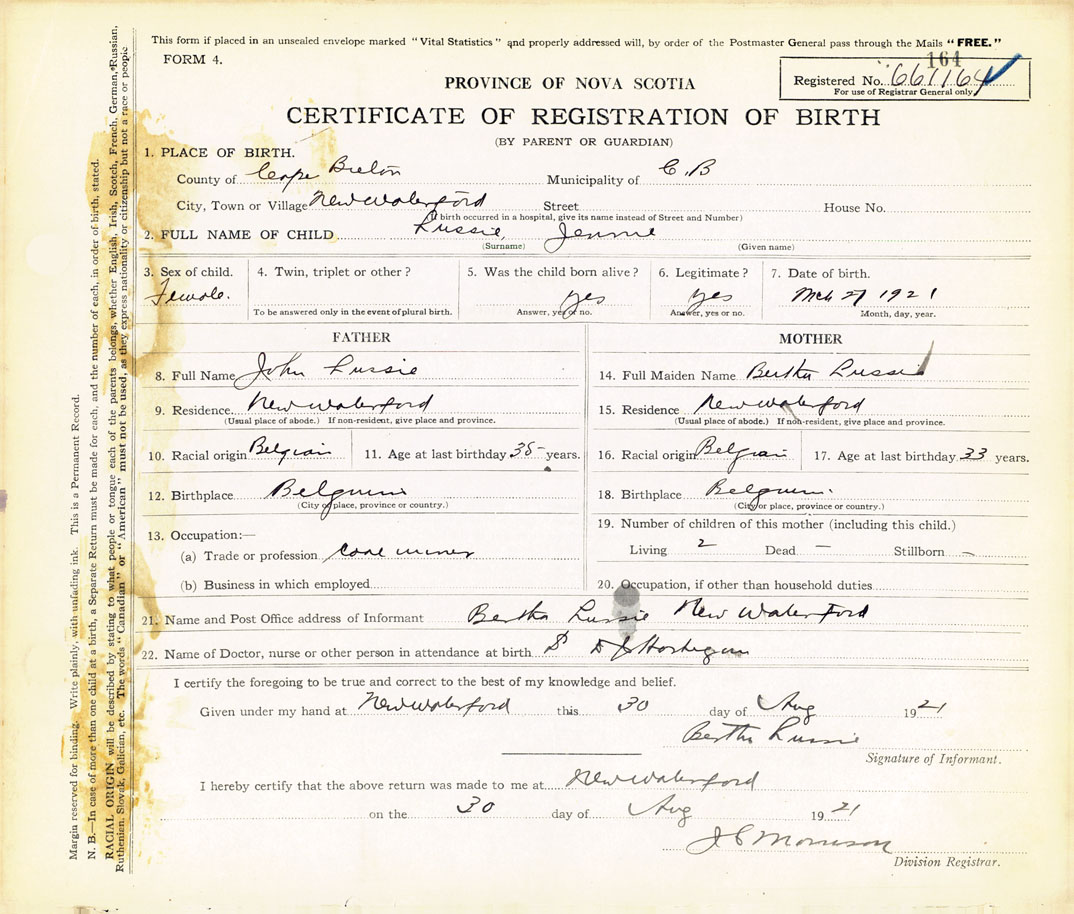 This form if placed in an unsealed envelope marked "Vital Statistics" and properly addressed will, by order of the Postmaster General pass through the Mails "FREE."
FORM 4.
164
PROVINCE OF NOVA SCOTIA
Registered No. 661164
For use of Registrar General only
CERTIFICATE OF REGISTRATION OF BIRTH
(BY PARENT OR GUARDIAN)
1. PLACE OF BIRTH.
County of Cape Breton Municipality of C.B
City, Town or Village New Waterford Street House No.
(If birth occurred in a hospital, give its name instead of Street and Number)
2. FULL NAME OF CHILD Lussie, Jennie
(Surname) (Given name)
3. Sex of child. 4. Twin, triplet or other? 5. Was the child born alive? 6. Legitimate? 7. Date of birth.
Female. yes yes Mch 27 1921
To be answered only in the event of plural birth. Answer, yes or no. Answer, yes or no. Month, day, year.
FATHER
8. Full Name John Lussie
9. Residence New Waterford
(Usual place of abode.) If non-resident, give place and province.
10. Racial origin Belgian 11. Age at last birthday 35 years.
12. Birthplace Belgium
(City or place, province or country.)
13. Occupation:—
(a) Trade or profession coal miner
(b) Business in which employed
MOTHER
14. Full Maiden Name Bertha Lussie
15. Residence New Waterford
(Usual place of abode.) If non-resident, give place and province.
16. Racial origin Belgian 17. Age at last birthday 33 years.
18. Birthplace Belgium.
(City or place, province or country.)
19. Number of children of this mother (including this child.)
Living 2 Dead — Stillborn —
20. Occupation, if other than household duties
21. Name and Post Office address of Informant Bertha Lussie New Waterford
22. Name of Doctor, nurse or other person in attendance at birth
I certify the foregoing to be true and correct to the best of my knowledge and belief.
Given under my hand at New Waterford this 30 day of Aug 1921
Bertha Lussie
Signature of Informant.
I hereby certify that the above return was made to me at New Waterford
on the 30 day of Aug 1921
J S Morrison
Division Registrar.
Margin reserved for binding. Write plainly, with unfading ink. This is a Permanent Record.
N. B.—In case of more than one child at a birth, a Separate Return must be made for each, and the number of each, in order of birth, stated.
RACIAL ORIGIN will be described by stating to what people or tongue each of the parents belongs, whether English, Irish, Scotch, French, German, Russian,
Ruthenian, Slovak, Galician, etc. The words "Canadian" or "American" must not be used, as they express nationality or citizenship but not a race or people